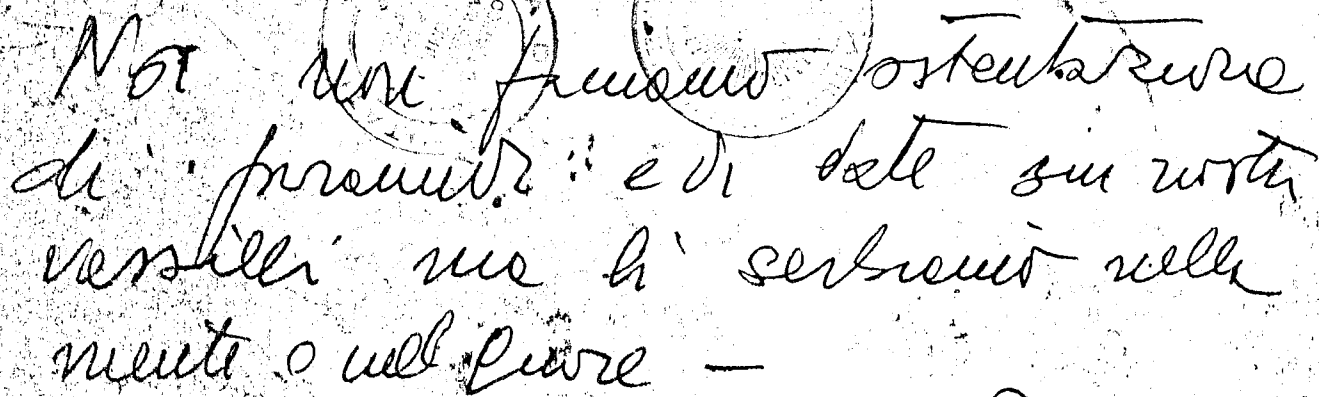 Noi non facciamo ostentazione
di piramidi e di date sui nostri
vessilli ma li serbiamo nella
mente e nel cuore –